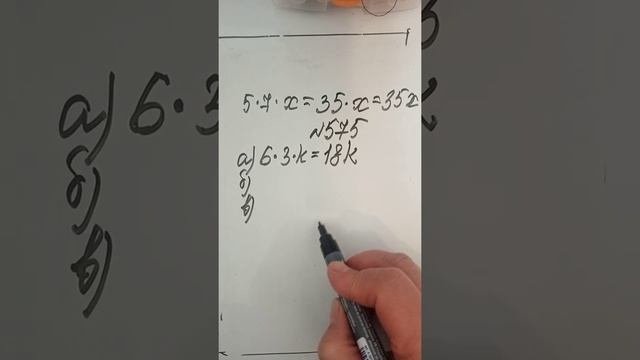 5·7·x=35·x=35x
№575
а) 6·3·k=18k
б)
в)